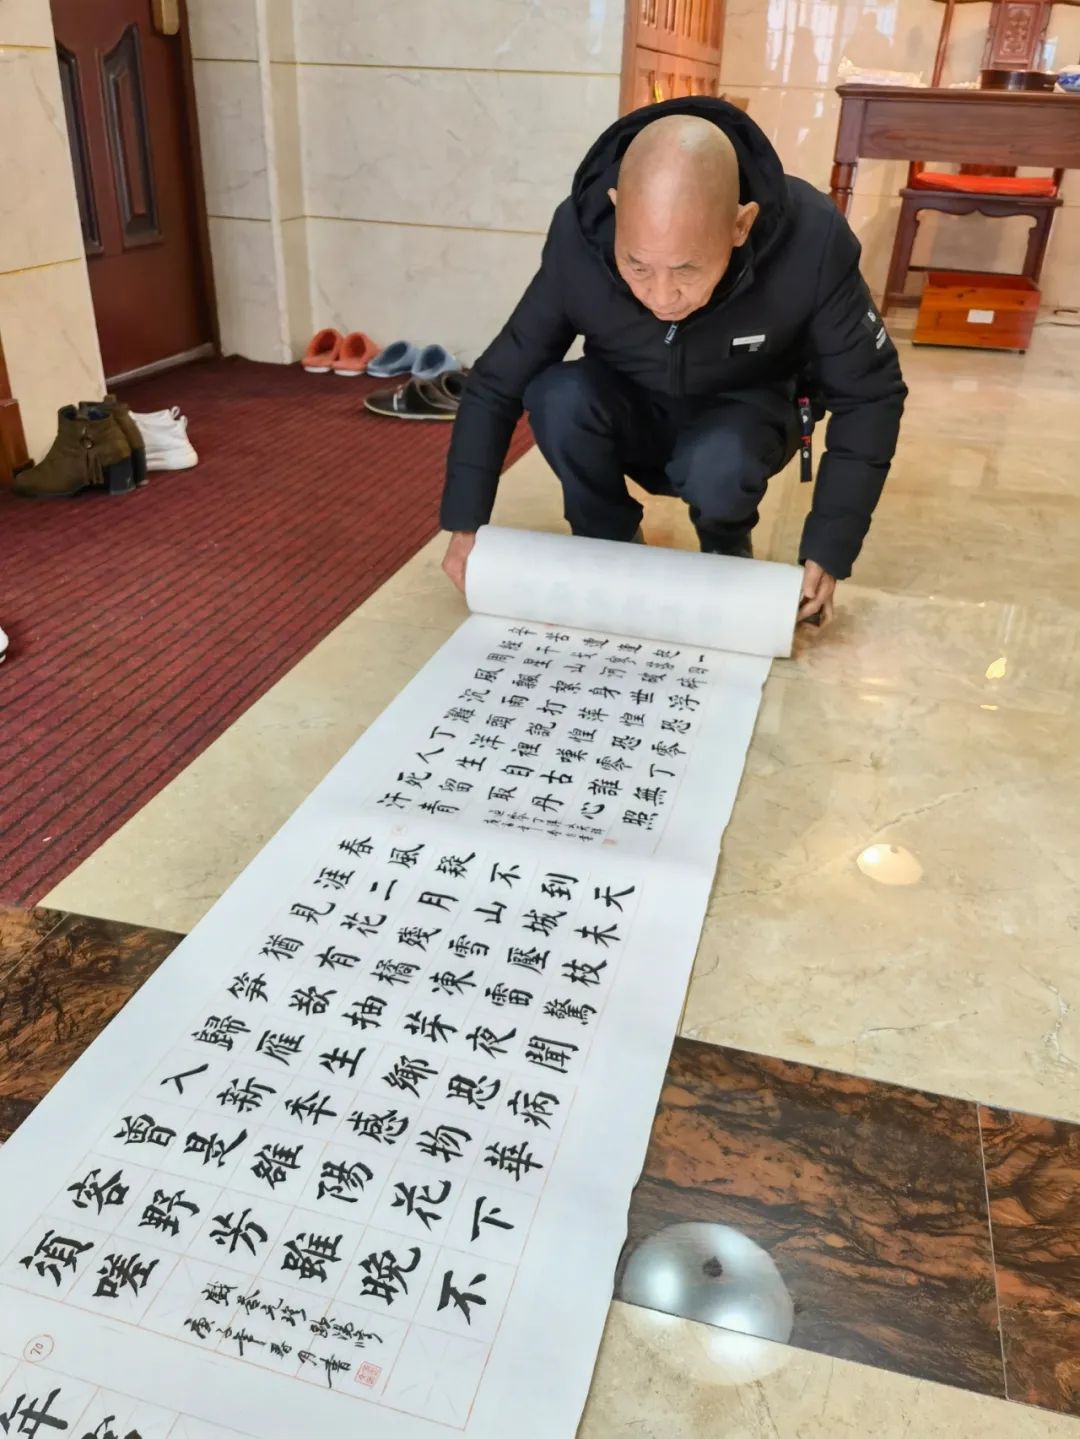 辛苦遭逢起一
經干戈寥落四
周星山河破碎
風飄絮身世浮
沉雨打萍惶恐
灘頭說惶恐零
丁洋裡嘆零丁
人生自古誰無
死留取丹心照
汗青
春風疑不到天
涯二月山城未
見花殘雪壓枝
猶有橘凍雷驚
笋欲抽芽夜聞
歸雁生鄉思病
入新秊感物華
曾是雒陽花下
客野芳雖晚不
須嗟
戲答元珍 歐陽修
庚子年 月書
70
年